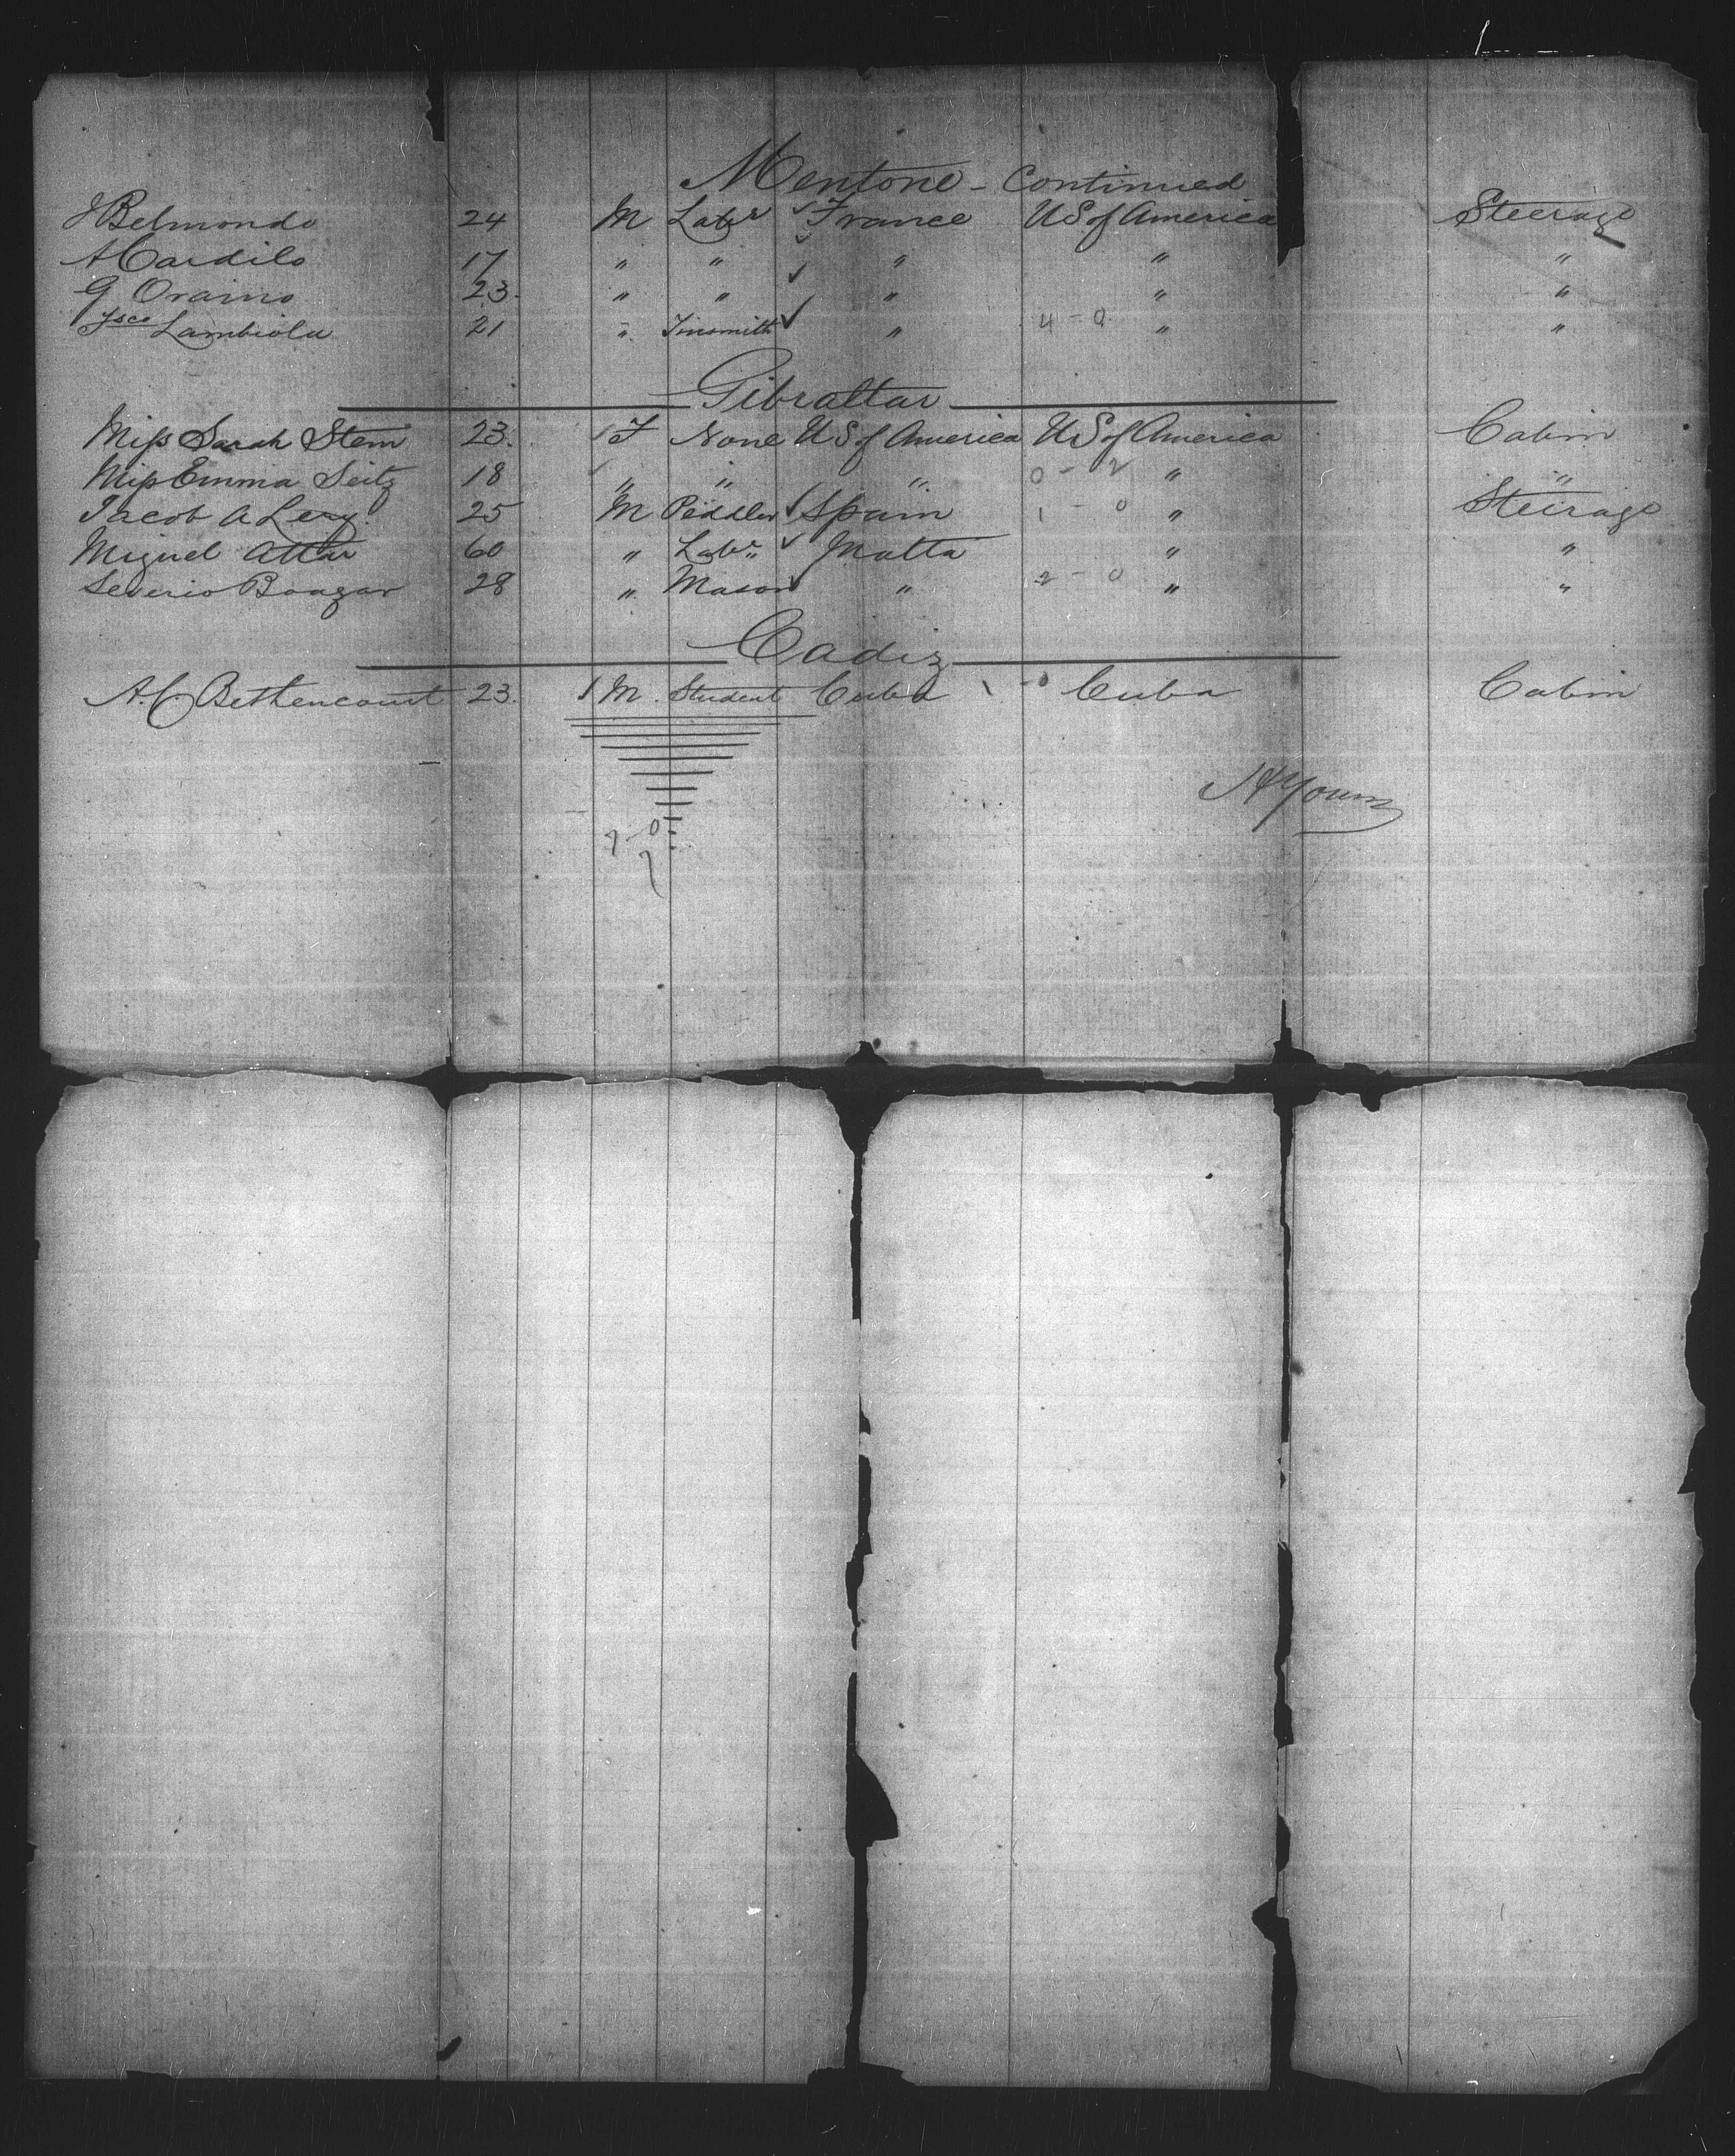 Mentone - Continued
J Belmondo 24 M Labr ✓ France US of America Steerage
A Cardilo 17 " " ✓ " " "
G Oraino 23. " " ✓ " " "
Fsco Lambiola 21 " Tinsmith ✓ " 4 - 0 " "
Gibraltar
Miss Sarah Stern 23. ✓ F None US of America US of America Cabin
Miss Emma Seitz 18 ✓ " " " 0 - 2 " "
Jacob A Levy. 25 M Peddler ✓ Spain 1 - 0 " Steerage
Miguel Attar 60 " Labr ✓ Malta " "
Severio Boagar 28 " Mason ✓ " 2 - 0 " "
Cadiz
A. C. Bethencourt 23. 1 M. Student Cuba 1 - 0 Cuba Cabin
H Young
7 - 0
7